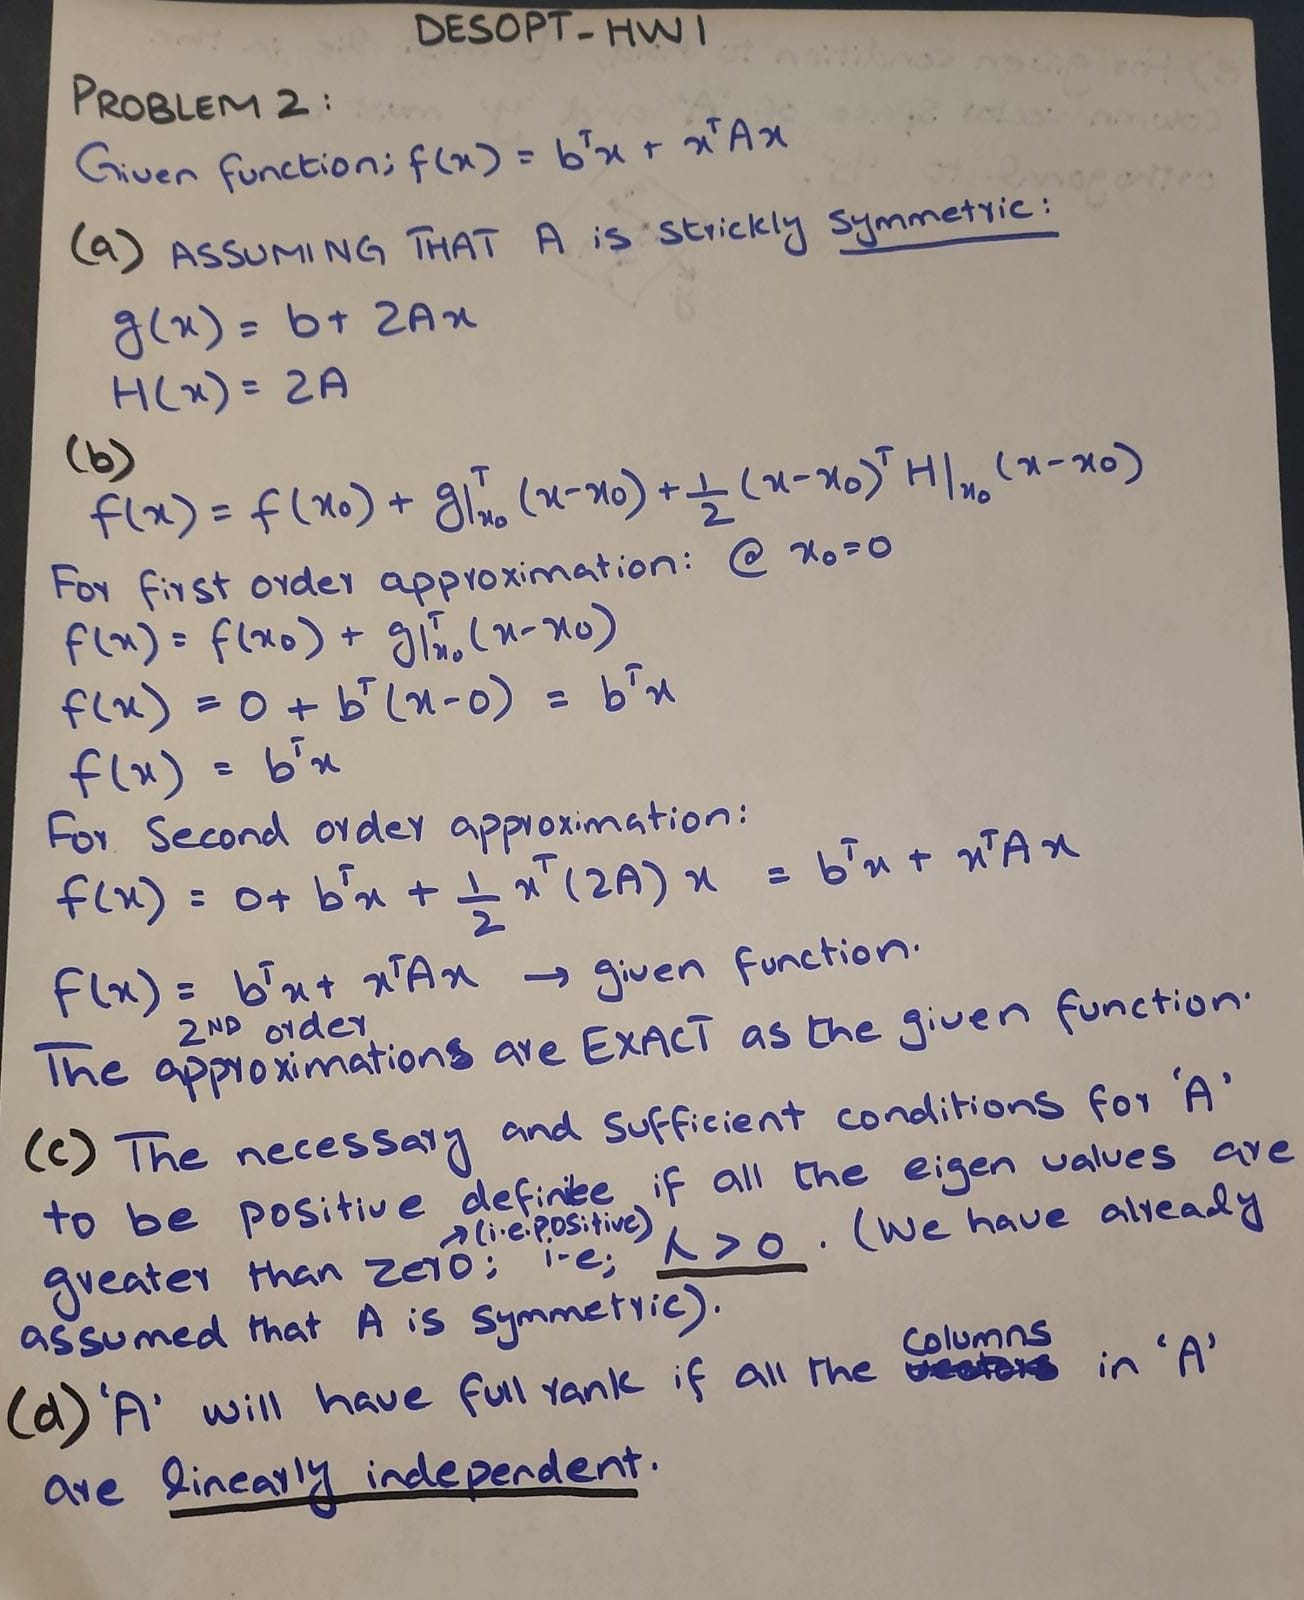 DESOPT-HW1
PROBLEM 2:
Given function; f(x) = bᵀx + xᵀAx
(a) ASSUMING THAT A is strickly symmetric:
g(x) = b + 2Ax
H(x) = 2A
(b)
f(x) = f(x₀) + g|ᵀₓ₀ (x-x₀) + 1/2 (x-x₀)ᵀ H|ₓ₀ (x-x₀)
For first order approximation: @ x₀=0
f(x) = f(x₀) + g|ᵀₓ₀ (x-x₀)
f(x) = 0 + bᵀ(x-0) = bᵀx
f(x) = bᵀx
For Second order approximation:
f(x) = 0+ bᵀx + 1/2 xᵀ(2A) x = bᵀx + xᵀAx
f(x) = bᵀx + xᵀAx → given function.
2ND order
The approximations are EXACT as the given function.
(c) The necessary and sufficient conditions for 'A'
to be positive definite if all the eigen values are
→(i.e. positive)
greater than zero; i-e; λ > 0 . (We have already
assumed that A is symmetric).
columns
(d) 'A' will have full rank if all the in 'A'
are linearly independent.